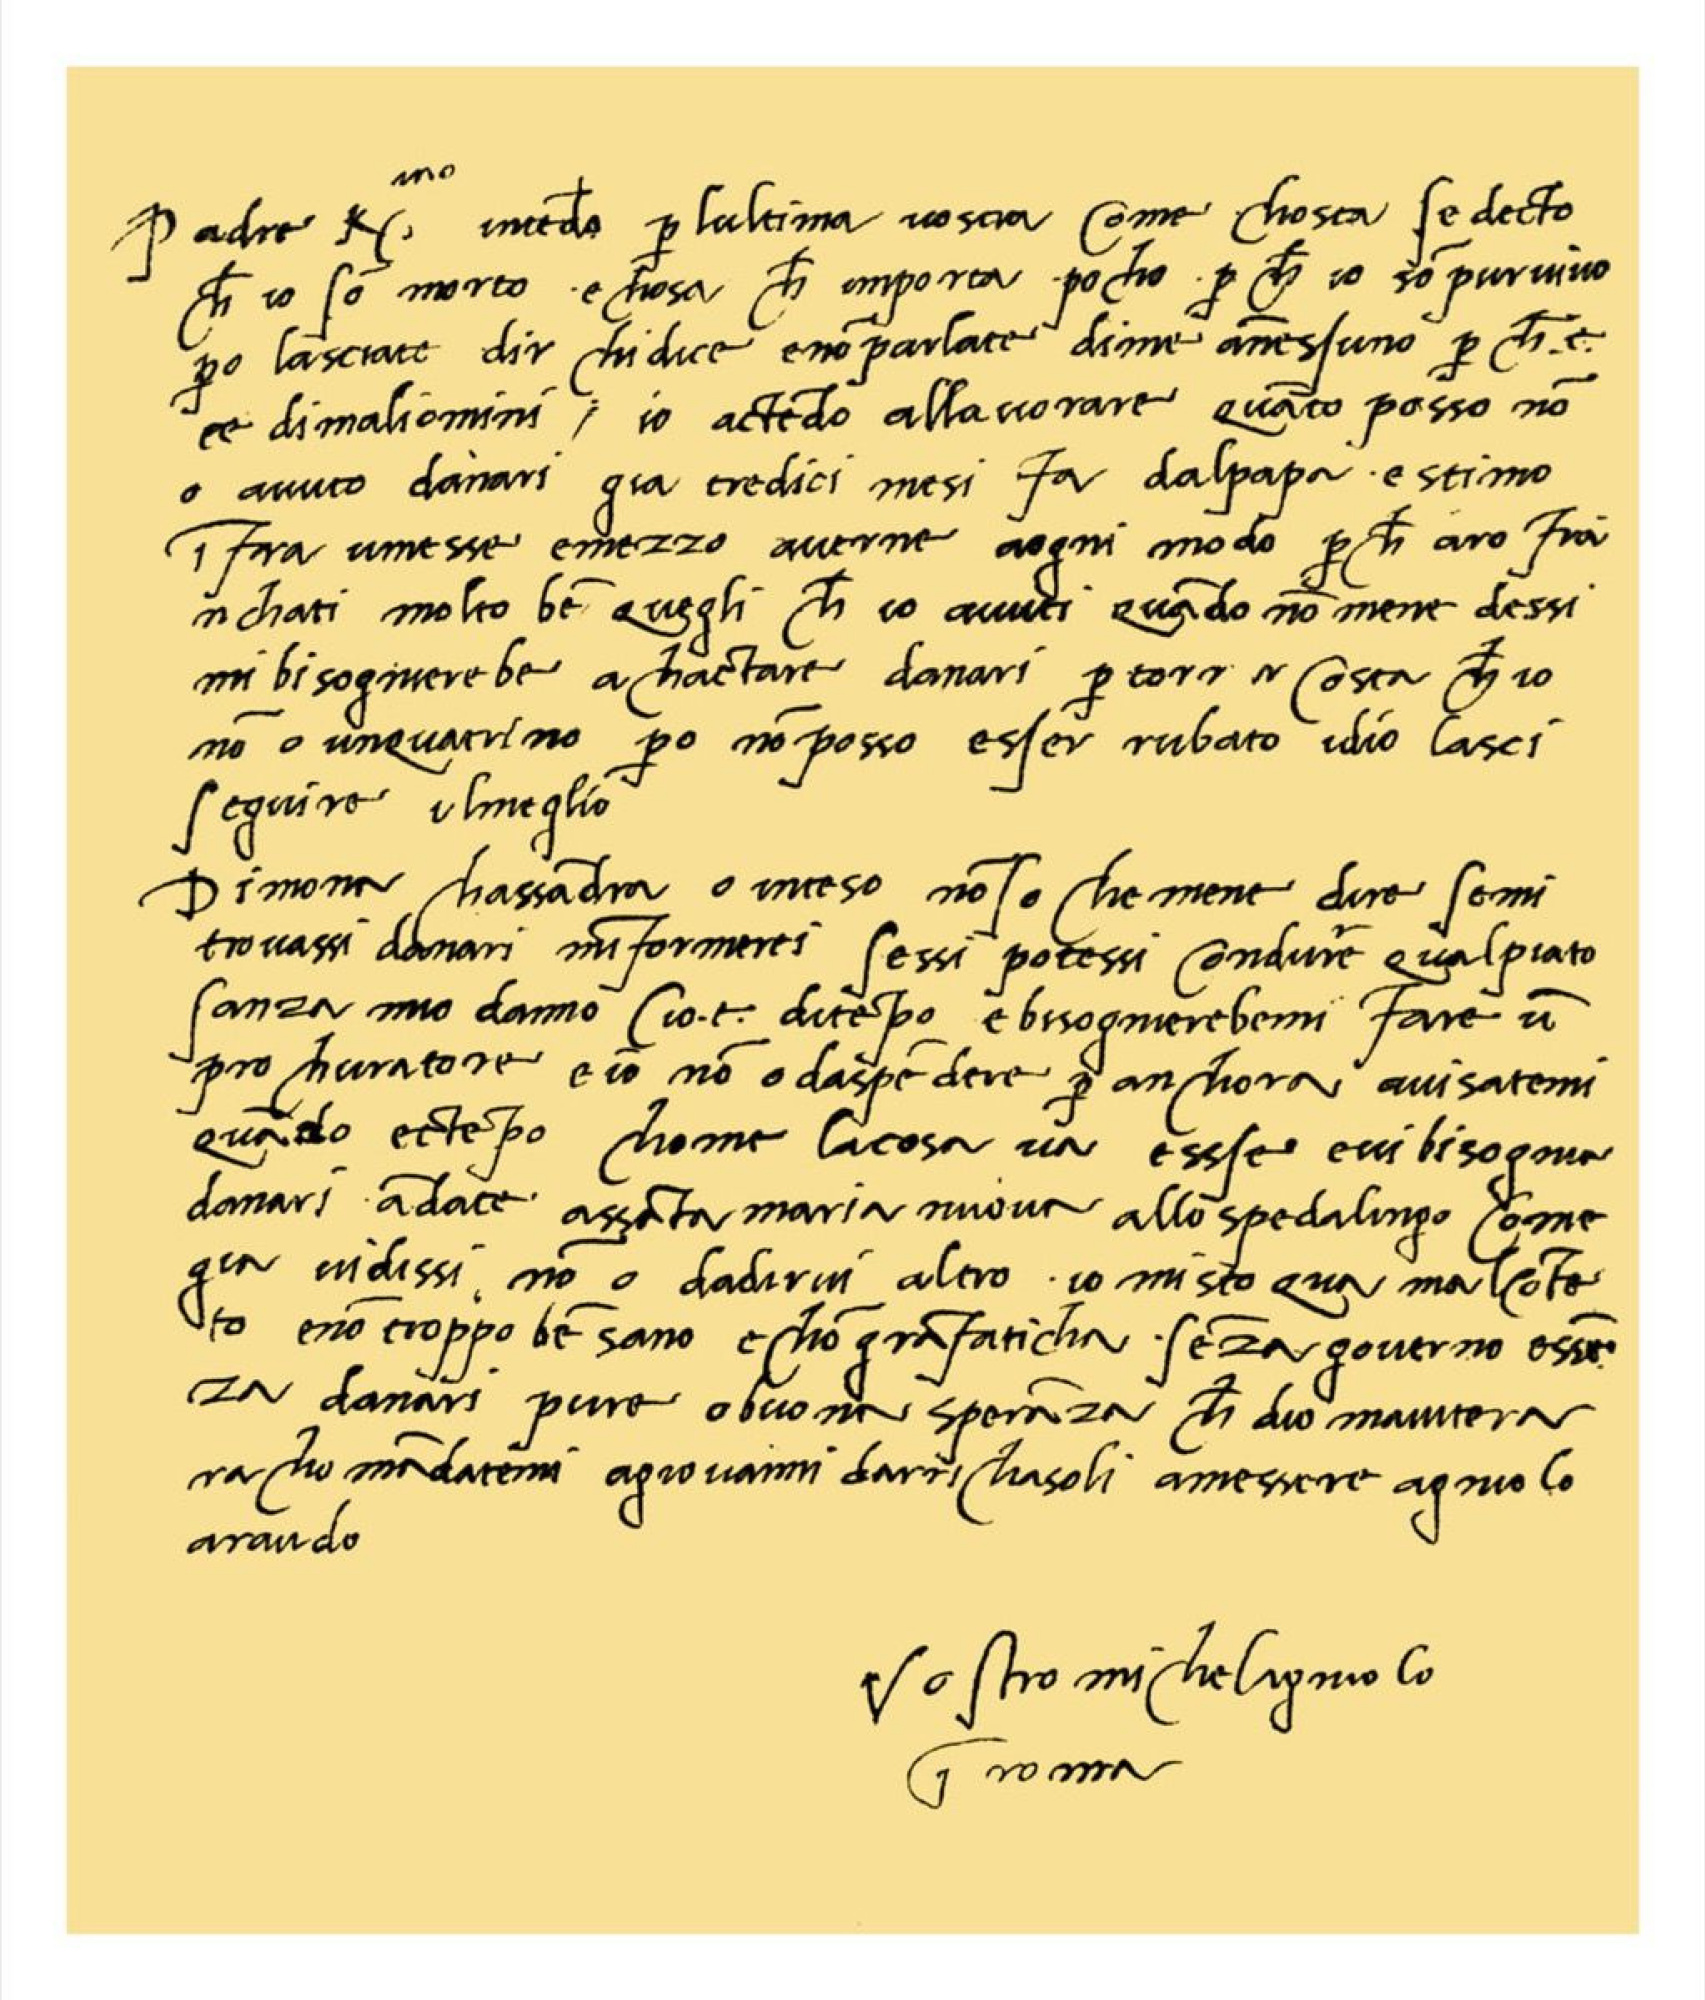 Padre K(.mo intēdo p̱ lultima vostra Come chosta se decto
ch̄ io sō morto e chosa ch̄ importa pocho p̱ ch̄ io sō pur vivo
p̱o lasciate dir chi dice e nō parlate di me a nessuno p̱ ch̄ e
ee di mali omini / io actēdo allavorare quāto posso nō
o avuto danari gia tredici mesi fa dal papa e stimo
ī fra u messe e mezzo averne aogni modo p̱ ch̄ aro fra
nchati molto bē quegli ch̄ io avuti quādo nō me ne dessi
mi bisognierebe achactare danari p̱ torr Costa ch̄ io
nō o un quatrino p̱o nō posso esser rubato idio lasci
seguire il meglio
Di mona chassādra o inteso nō so che me ne dire se mi
trovassi danari mīformerei sessi potessi Condure qua l piato
sanza mio danno Cio e di tēpo e bisognierebemi fare ū
prochuratore e io nō o da spēdere p̱ anchora avisatemi
quādo e ctēpo chome la cosa va essevi bisognia
danari ādate a ssāta maria nuova allo spedalingo Come
gia vi dissi nō o da dirvi altro io mi sto qua mal Cōtē
to e nō troppo bē sano e chō grā faticha sēza governo e ssē
za danari pure o buona sperāza ch̄ dio maiutera
rachomādatemi a giovanni da rrichasoli a messere agniolo
araudo
Vostro michelagniolo
ī roma